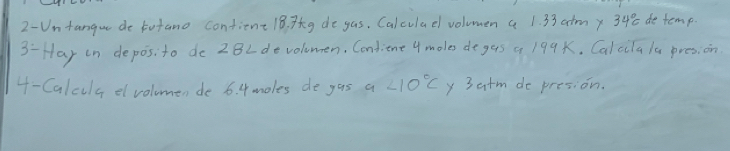 2-Un tanque de butano contiene 18,7kg de gas. Calcula el volumen a 1.33 atm y 34°c de temp.
3-Hay un depósito de 28L de volumen. Contiene 4 moles de gas a 199K. Calcula la presión.
4-Calcula el volumen de 6.4 moles de gas a 210°C y 3 atm de presión.